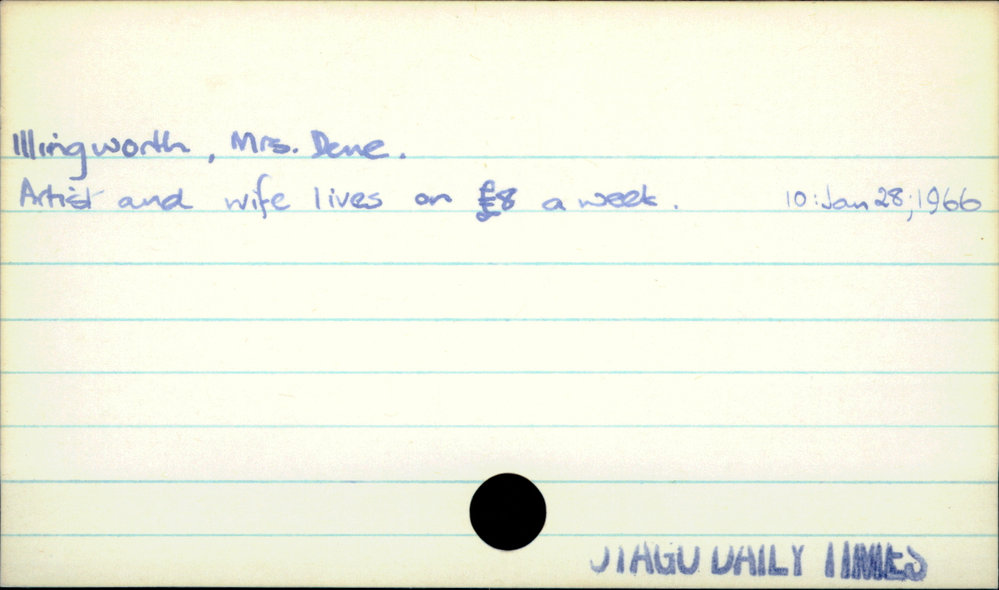 Illingworth, Mrs. Dene.
Artist and wife lives on £8 a week. 10:Jan 28;1966
OTAGO DAILY TIMES